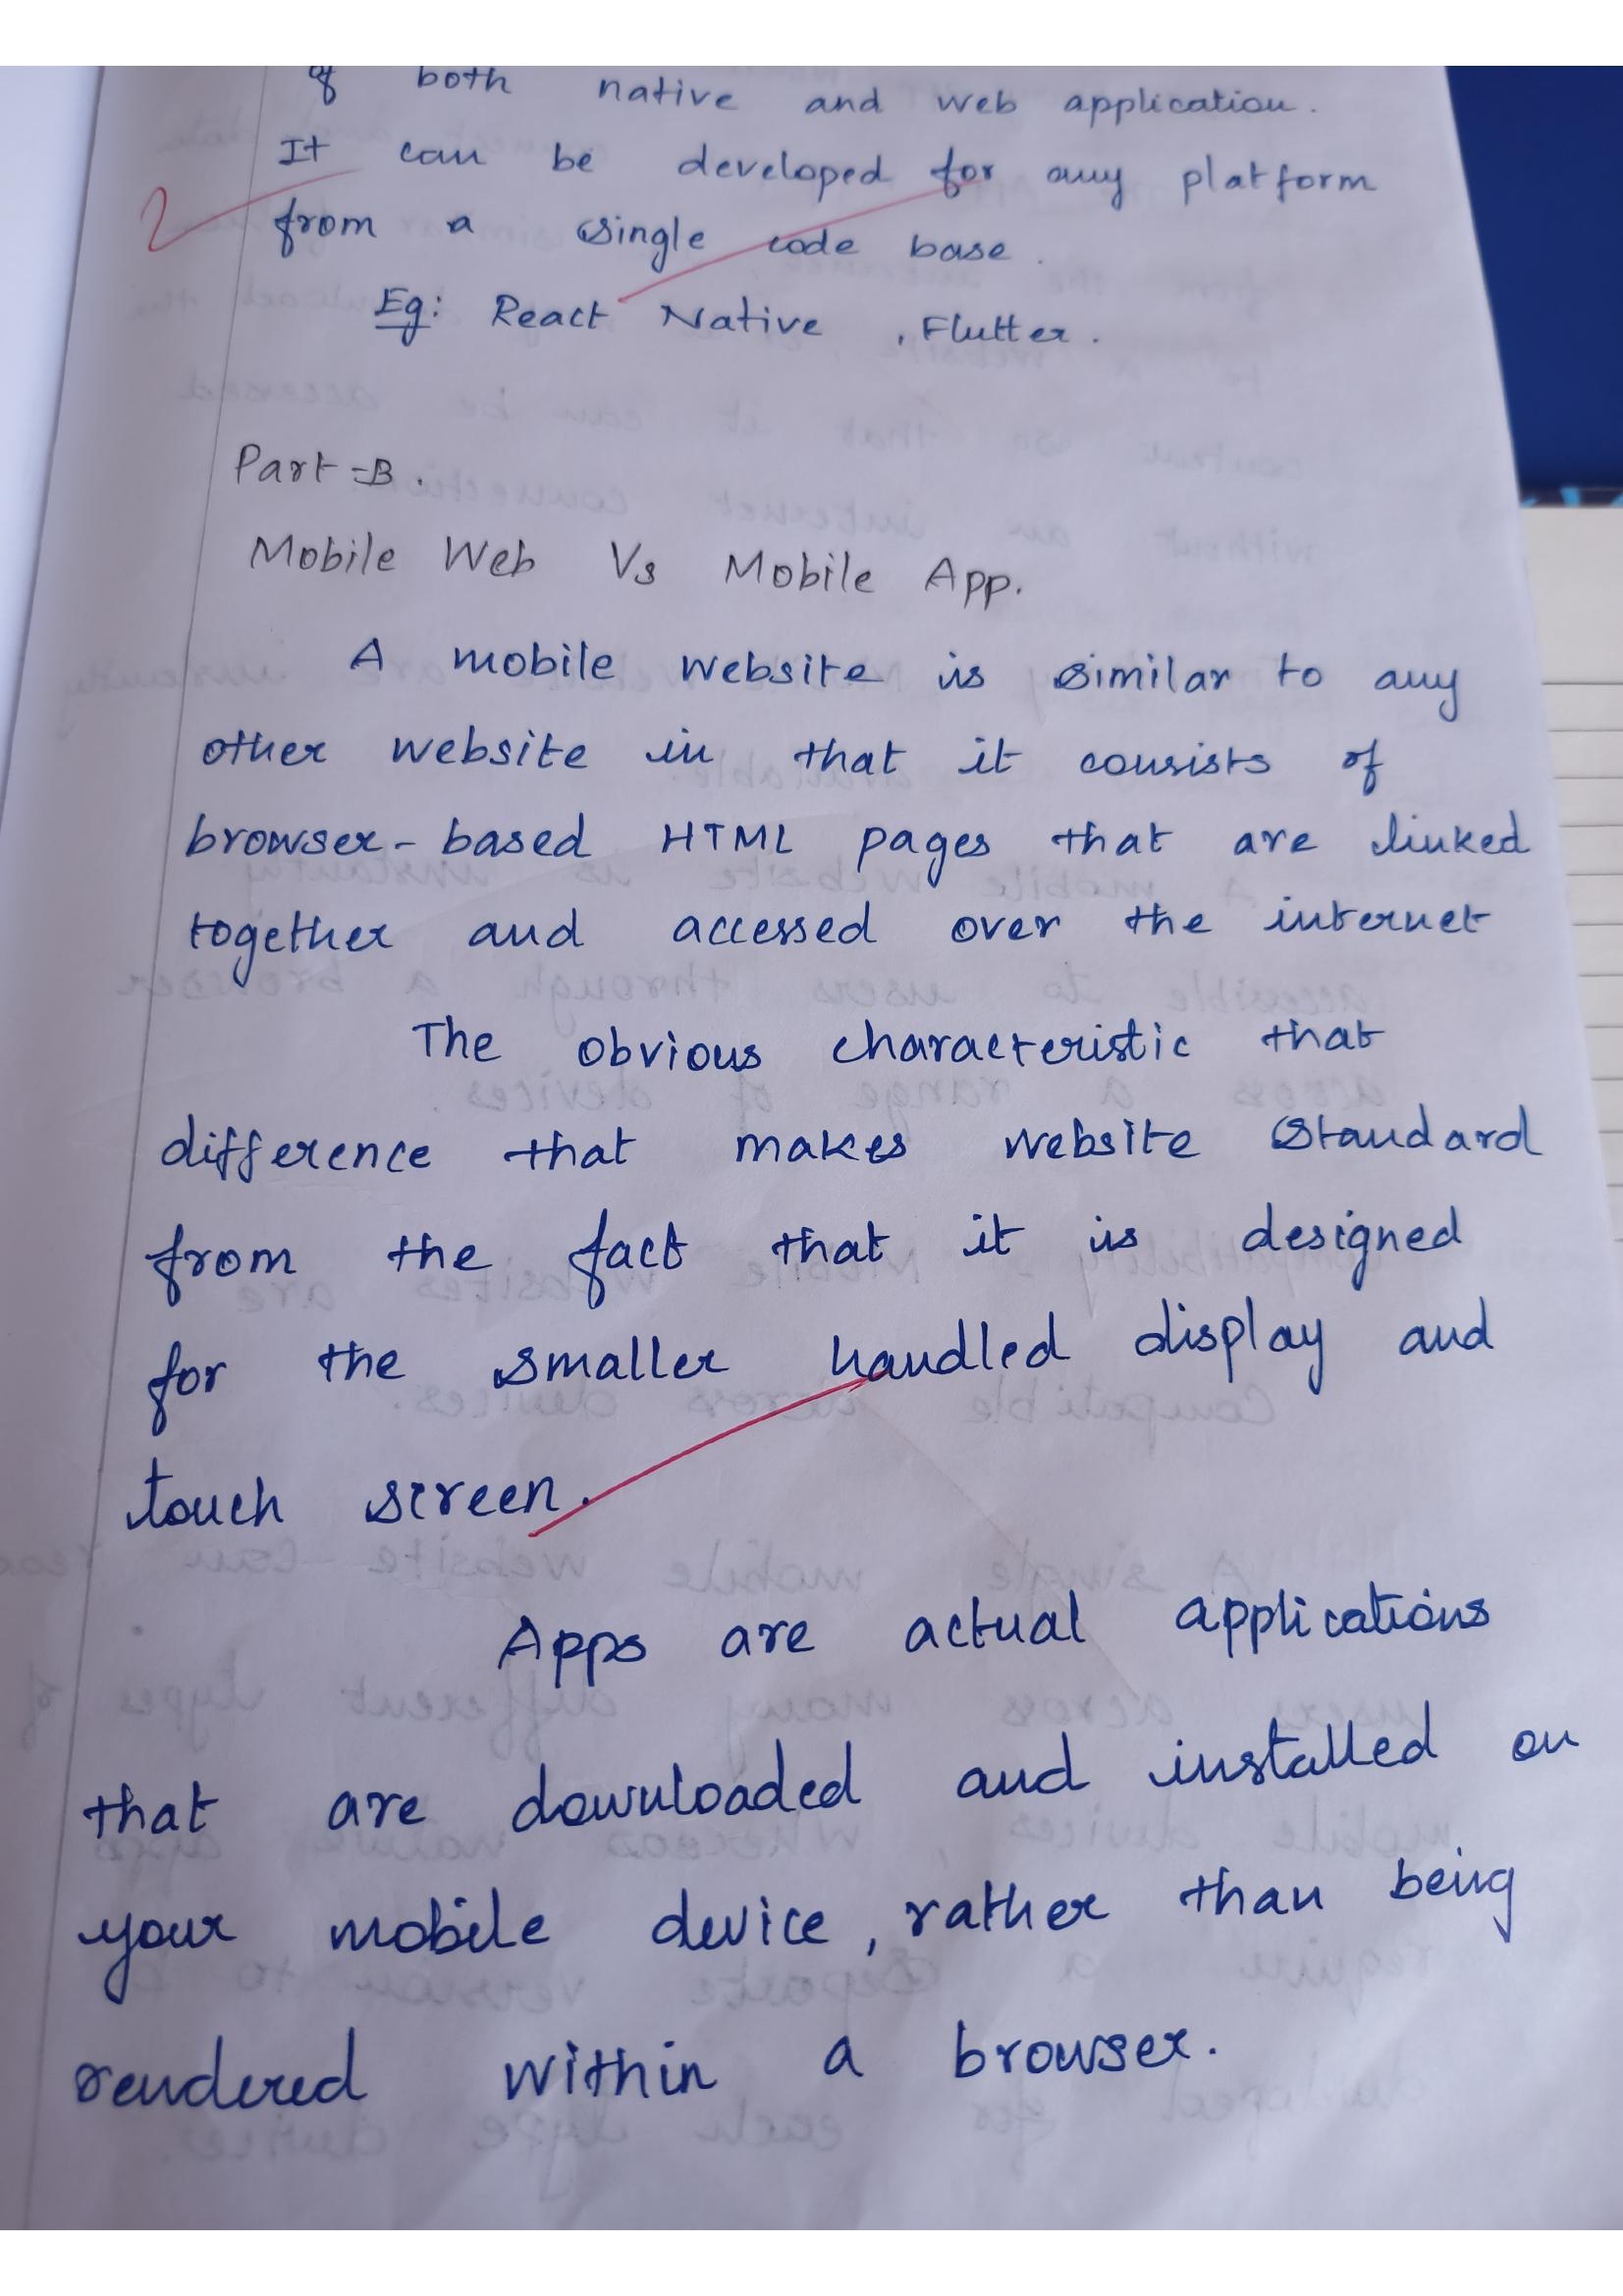 of both native and web application.
It can be developed for any platform
from a single code base.
Eg: React Native, Flutter.
Part-B.
Mobile Web Vs Mobile App.
A mobile website is similar to any
other website in that it consists of
browser-based HTML pages that are linked
together and accessed over the internet
The obvious characteristic that
difference that makes website Standard
from the fact that it is designed
for the smaller handled display and
touch screen.
Apps are actual applications
that are downloaded and installed on
your mobile device, rather than being
rendered within a browser.